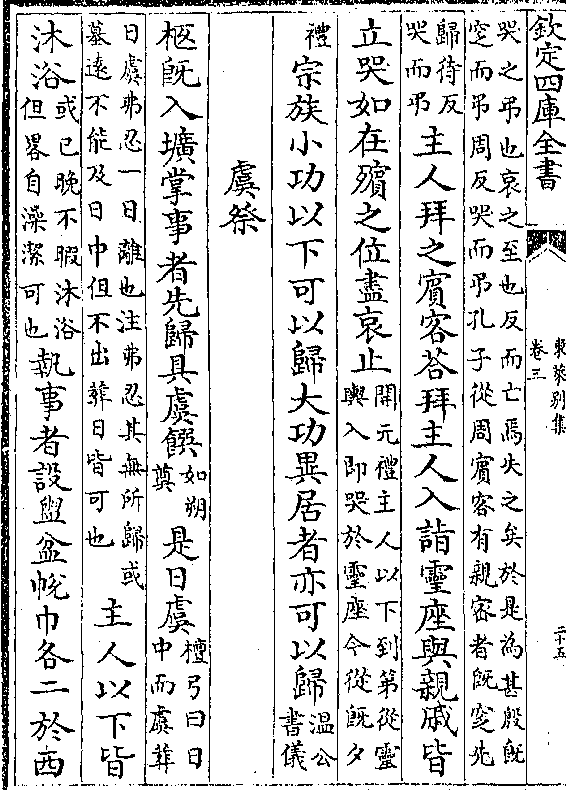 欽定四庫全書
東萊别集
卷三
二十五
哭之弔也哀之至也反而亡焉失之矣於是為甚殷既
窆而弔周反哭而弔孔子從周賓客有親宻者既窆先
歸待反
哭而弔
主人拜之賓客荅拜主人入詣靈座與親戚皆
立哭如在殯之位盡哀止
開元禮主人以下到第從靈
輿入即哭於靈座今從既夕
禮
宗族小功以下可以歸大功異居者亦可以歸
温公
書儀
虞祭
柩既入壙掌事者先歸具虞饌
如朔
奠
是日虞
檀弓曰日
中而虞葬
日虞弗忍一日離也注弗忍其無所歸或
墓逺不能及日中但不出葬日皆可也
主人以下皆
沐浴
或已晚不暇沐浴
但畧自澡潔可也
執事者設盥盆帨巾各二於西